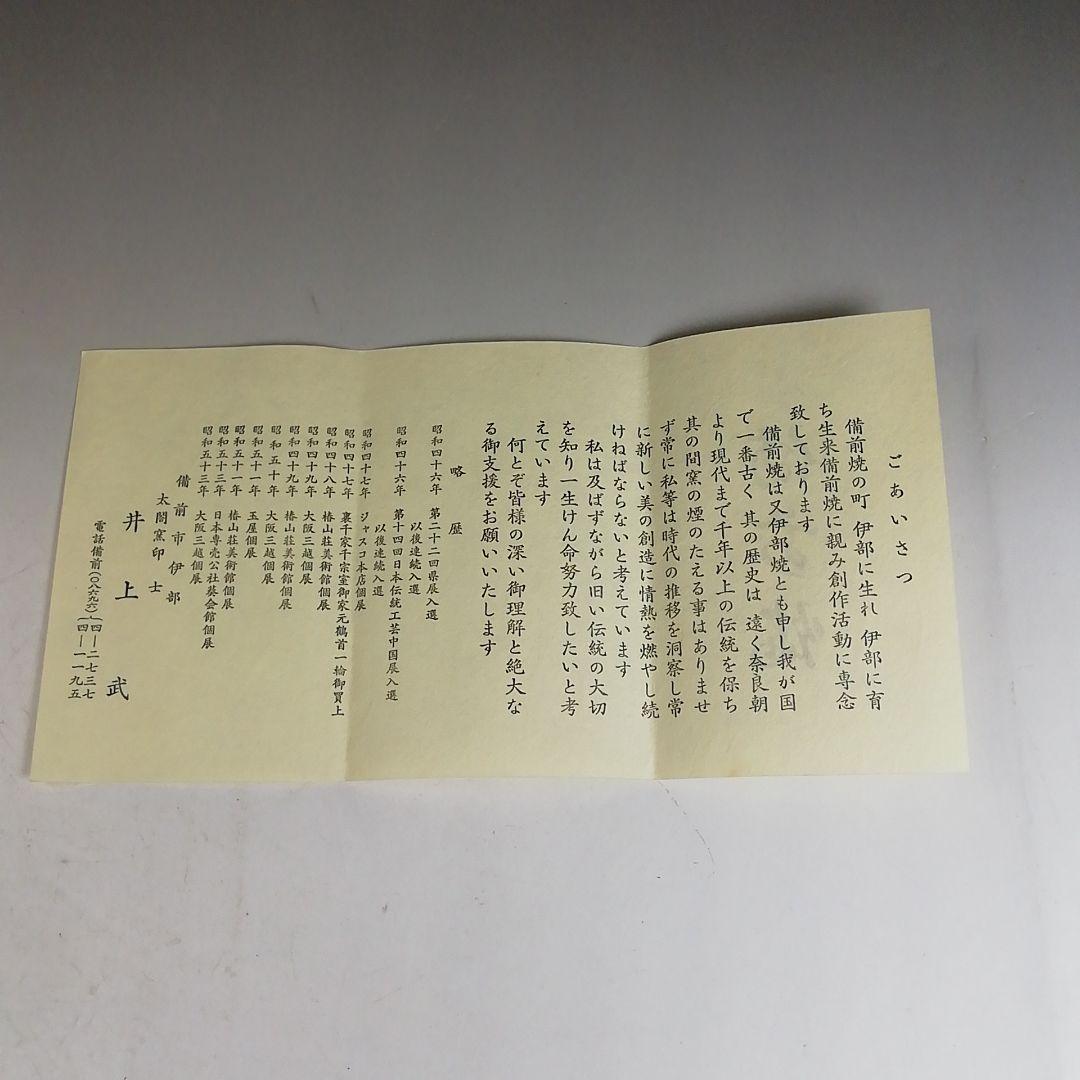 ごあいさつ
備前焼の町 伊部に生れ 伊部に育
ち生来備前焼に親み創作活動に専念
致しております
備前焼は又伊部焼とも申し我が国
で一番古く 其の歴史は 遠く奈良朝
より現代まで千年以上の伝統を保ち
其の間窯の煙のたえる事はありませ
ず常に私等は時代の推移を洞察し常
に新しい美の創造に情熱を燃やし続
けねばならないと考えています
私は及ばずながら旧い伝統の大切
を知り一生けん命努力致したいと考
えています
何とぞ皆様の深い御理解と絶大な
る御支援をお願いいたします
略歴
昭和四十六年 第二十二回県展入選
以後連続入選
昭和四十六年 第十四回日本伝統工芸中国展入選
以後連続入選
昭和四十七年 ジャスコ本店個展
昭和四十七年 裏千家千宗室御家元鶴首一輪御買上
昭和四十八年 椿山荘美術館個展
昭和四十九年 大阪三越個展
昭和四十九年 椿山荘美術館個展
昭和五十年 大阪三越個展
昭和五十一年 玉屋個展
昭和五十一年 椿山荘美術館個展
昭和五十三年 日本専売公社葵会館個展
昭和五十三年 大阪三越個展
備前市伊部
太閤窯印 士
井上 武
電話備前(〇八六九六)(四―二七三七
(四―一一九五